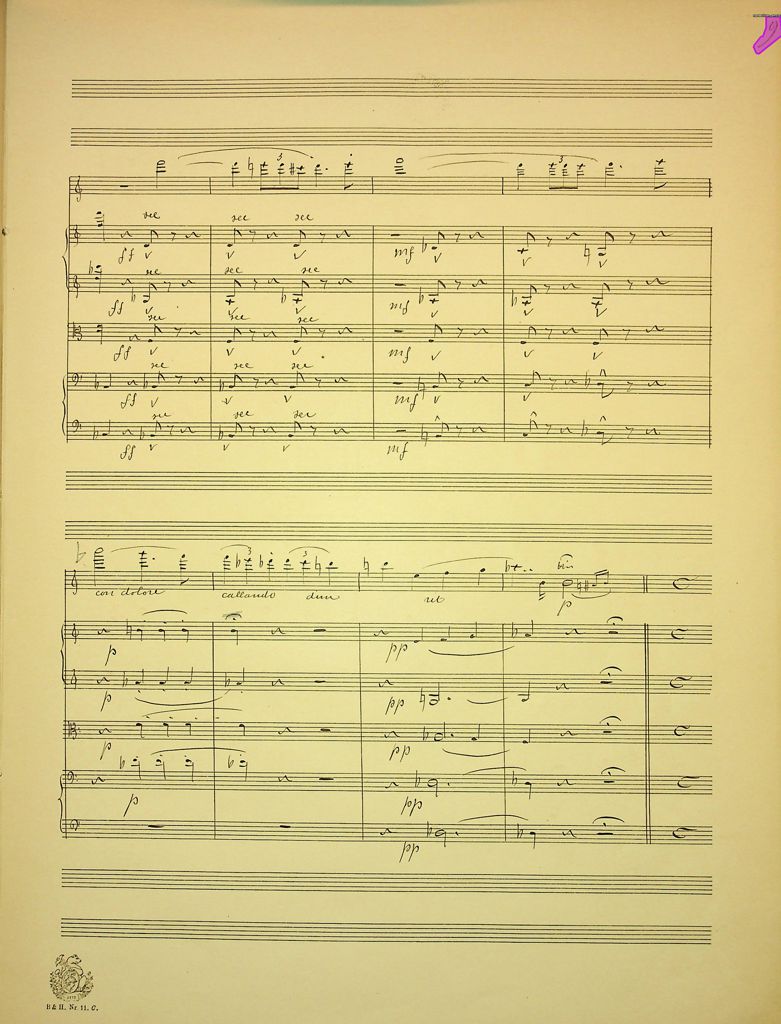 3 3
sec sec sec
ff mf
sec sec sec
ff mf
sec sec sec
ff mf
sec sec sec
ff mf
sec sec sec
ff mf
3 3
con dolore callando dim rit
p
p pp
p pp
p pp
p pp
pp
B & H. Nr. 11. C.